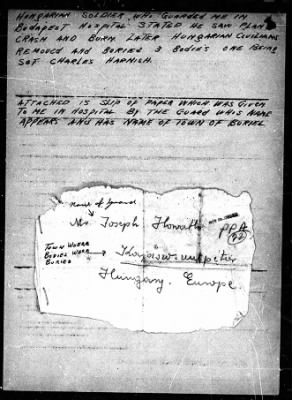 HUNGARIAN SOLDIER WHO GUARDED ME IN
BUDAPEST HOSPITAL STATED HE SAW PLANE
CRASH AND BURN. LATER HUNGARIAN CIVILIANS
REMOVED AND BURIED 3 BODIES ONE BEING
SGT CHARLES HARNISH.
ATTACHED IS SLIP OF PAPER WHICH WAS GIVEN
TO ME IN HOSPITAL BY THE GUARD WHO'S NAME
APPEARS AND HAS NAME OF TOWN OF BURIEL
name of guard
Mr Joseph Howath
TOWN WHERE
BODIES WERE
BURIED
Hungary. Europe.